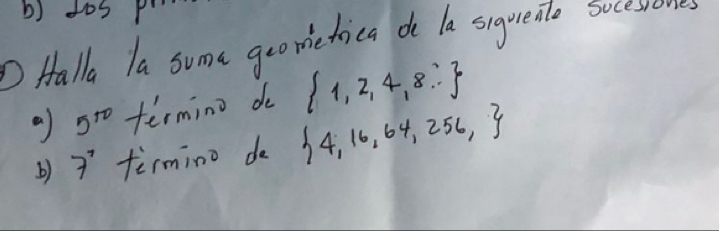 b) dos
Halla la suma geométrica de la siguiente sucesiones
a) 5to término de {1, 2, 4, 8..}
b) 7º término de {4, 16, 64, 256, }